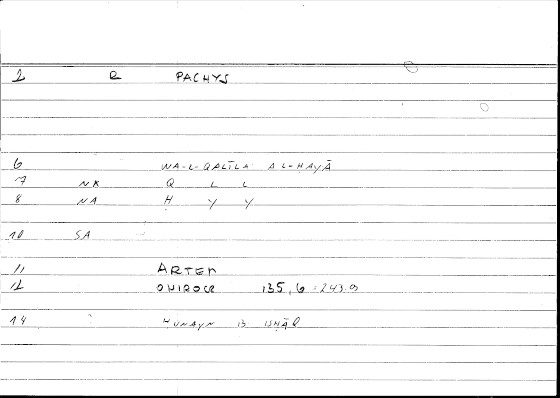 2 R PACHYS
6 WA-L-QALĪLA AL-ḤAYĀ
7 NK Q L L
8 NA Ḥ Y Y
10 SA
11 ARTEM
12 ONIROCR 135,6 = 243.9
14 ḤUNAYN B ISḤĀQ